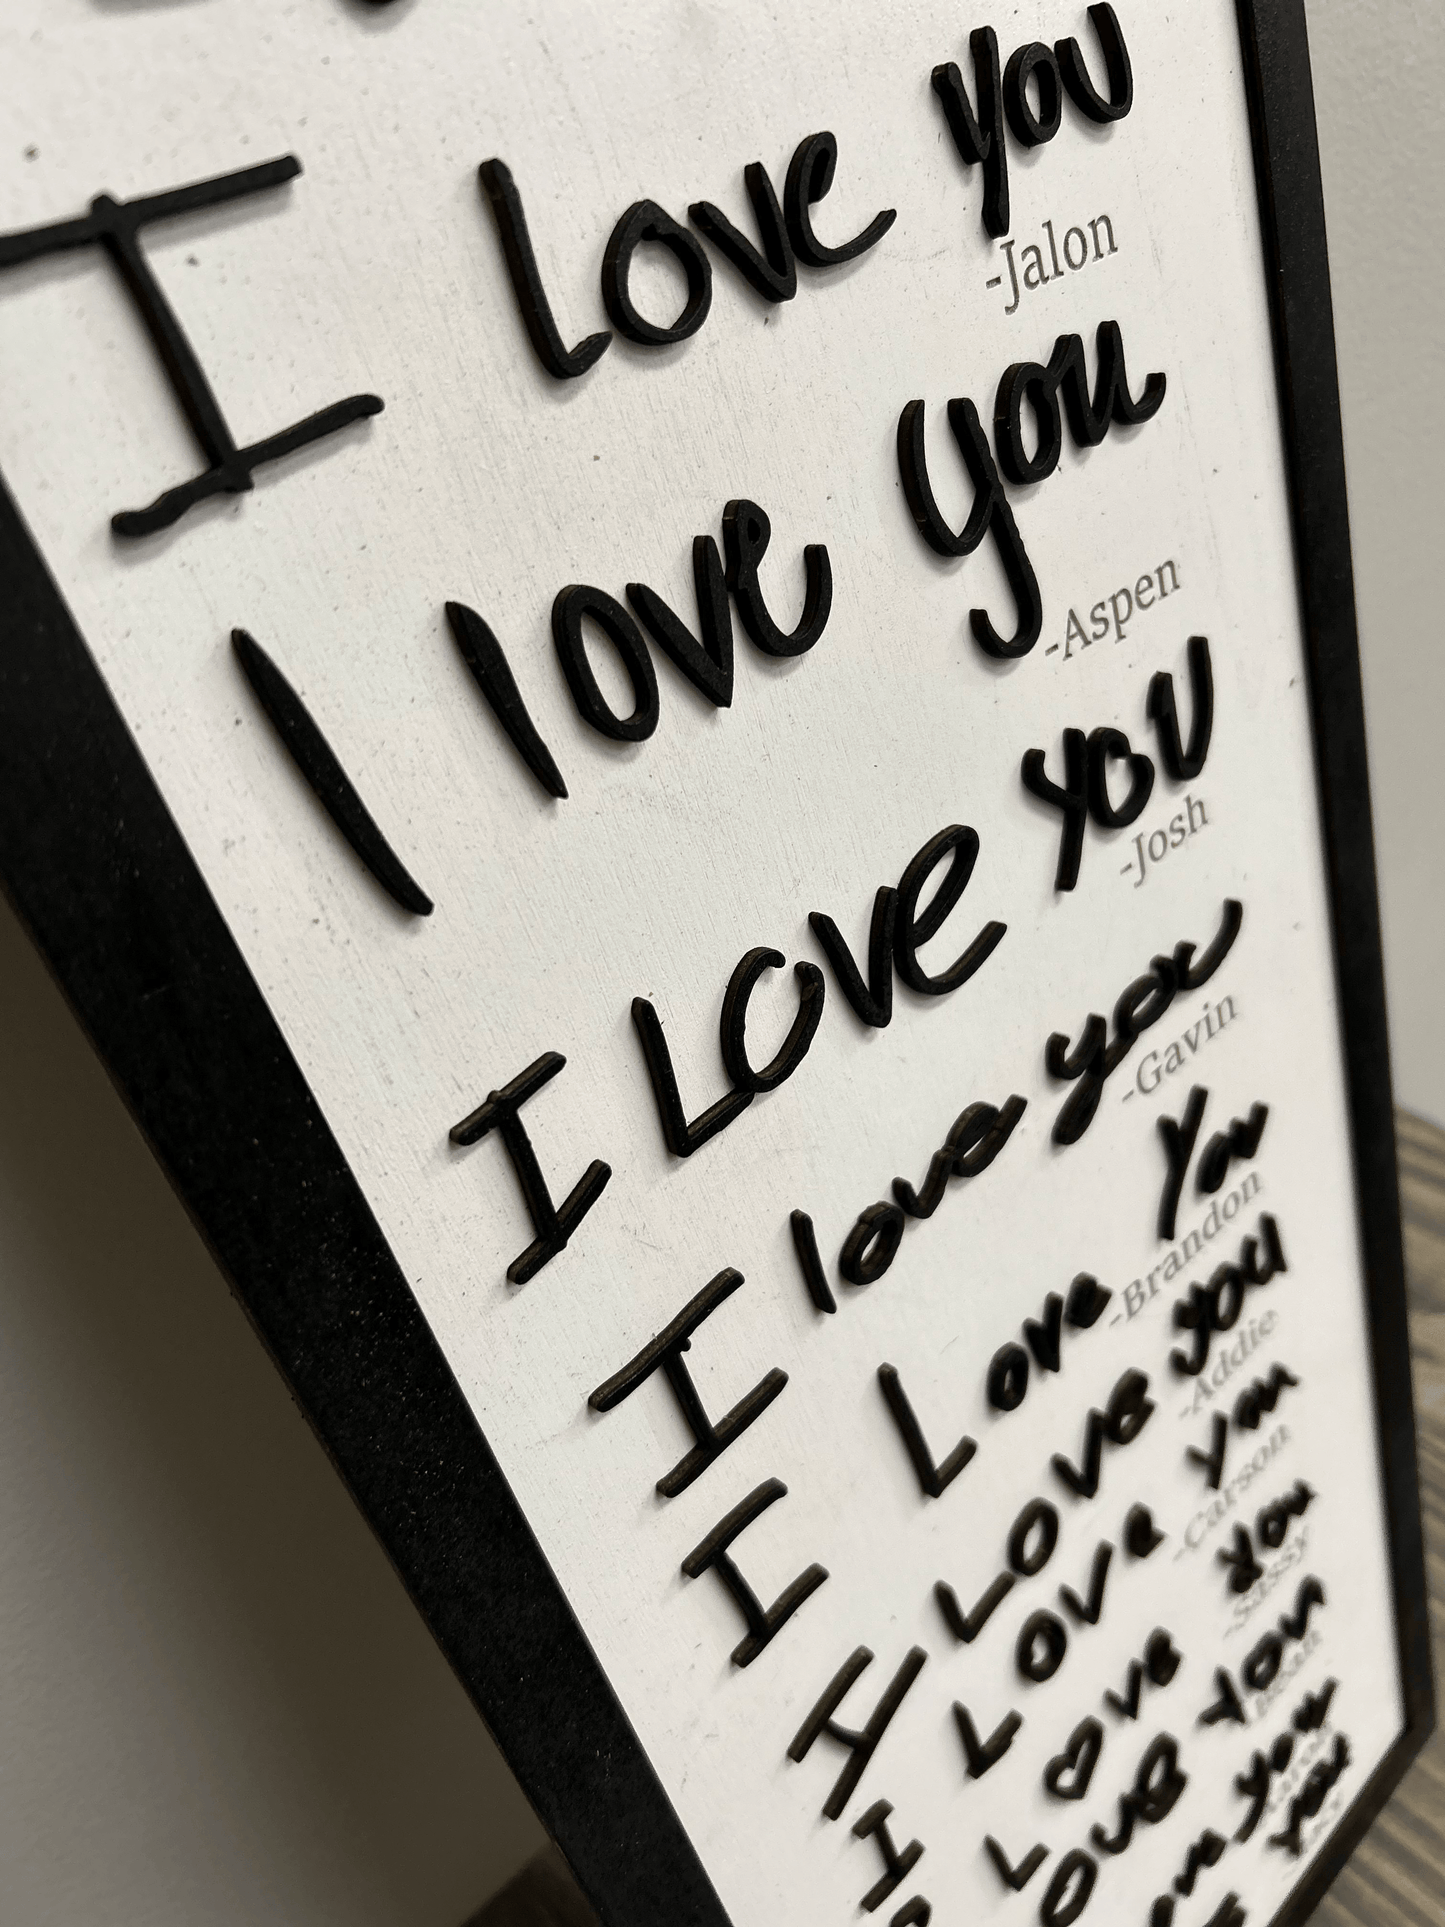 I Love you
-Jalon
I love you
-Aspen
I Love YOU
-Josh
I love you
-Gavin
I Love You
-Brandon
I LOVE YOU
-Addie
I LOVE you
-Carson
I Love You
-Sissy
LOVE YOU
you
you